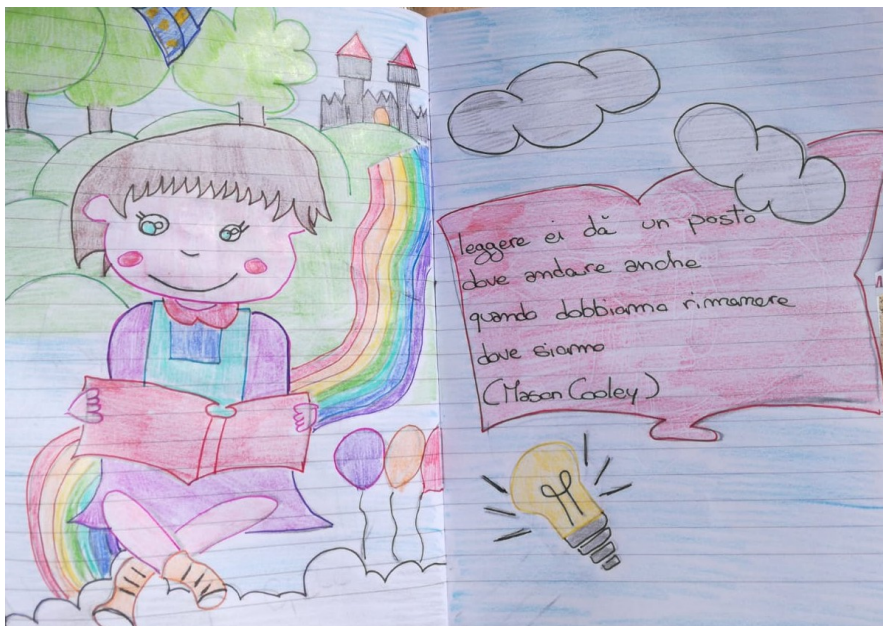 leggere ci dà un posto
dove andare anche
quando dobbiamo rimanere
dove siamo
(Mason Cooley)